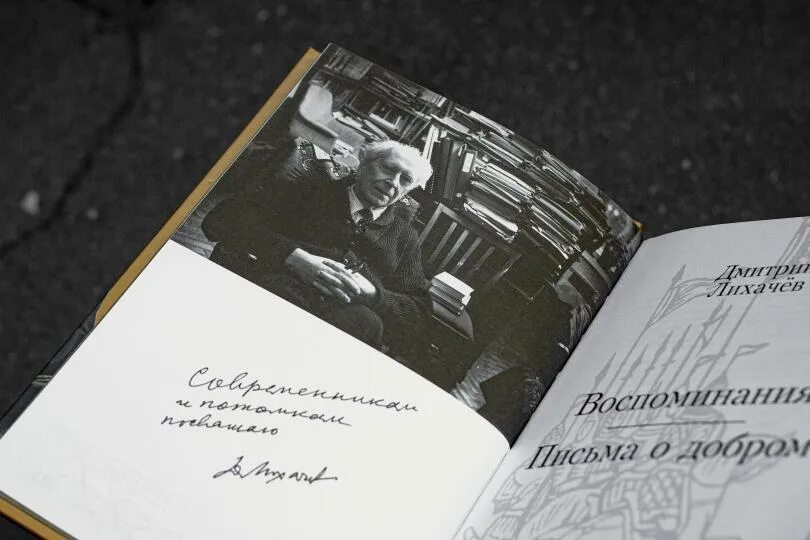 Современникам
и потомкам
посвящаю
Д Лихачев
Дмитрий
Лихачёв
Воспоминания
Письма о добром